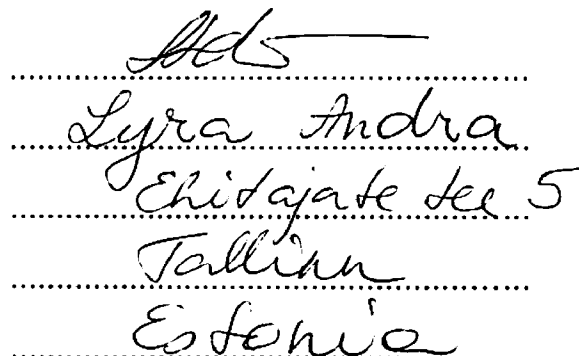 Lyra Andra
Ehitajate tee 5
Tallinn
Estonia